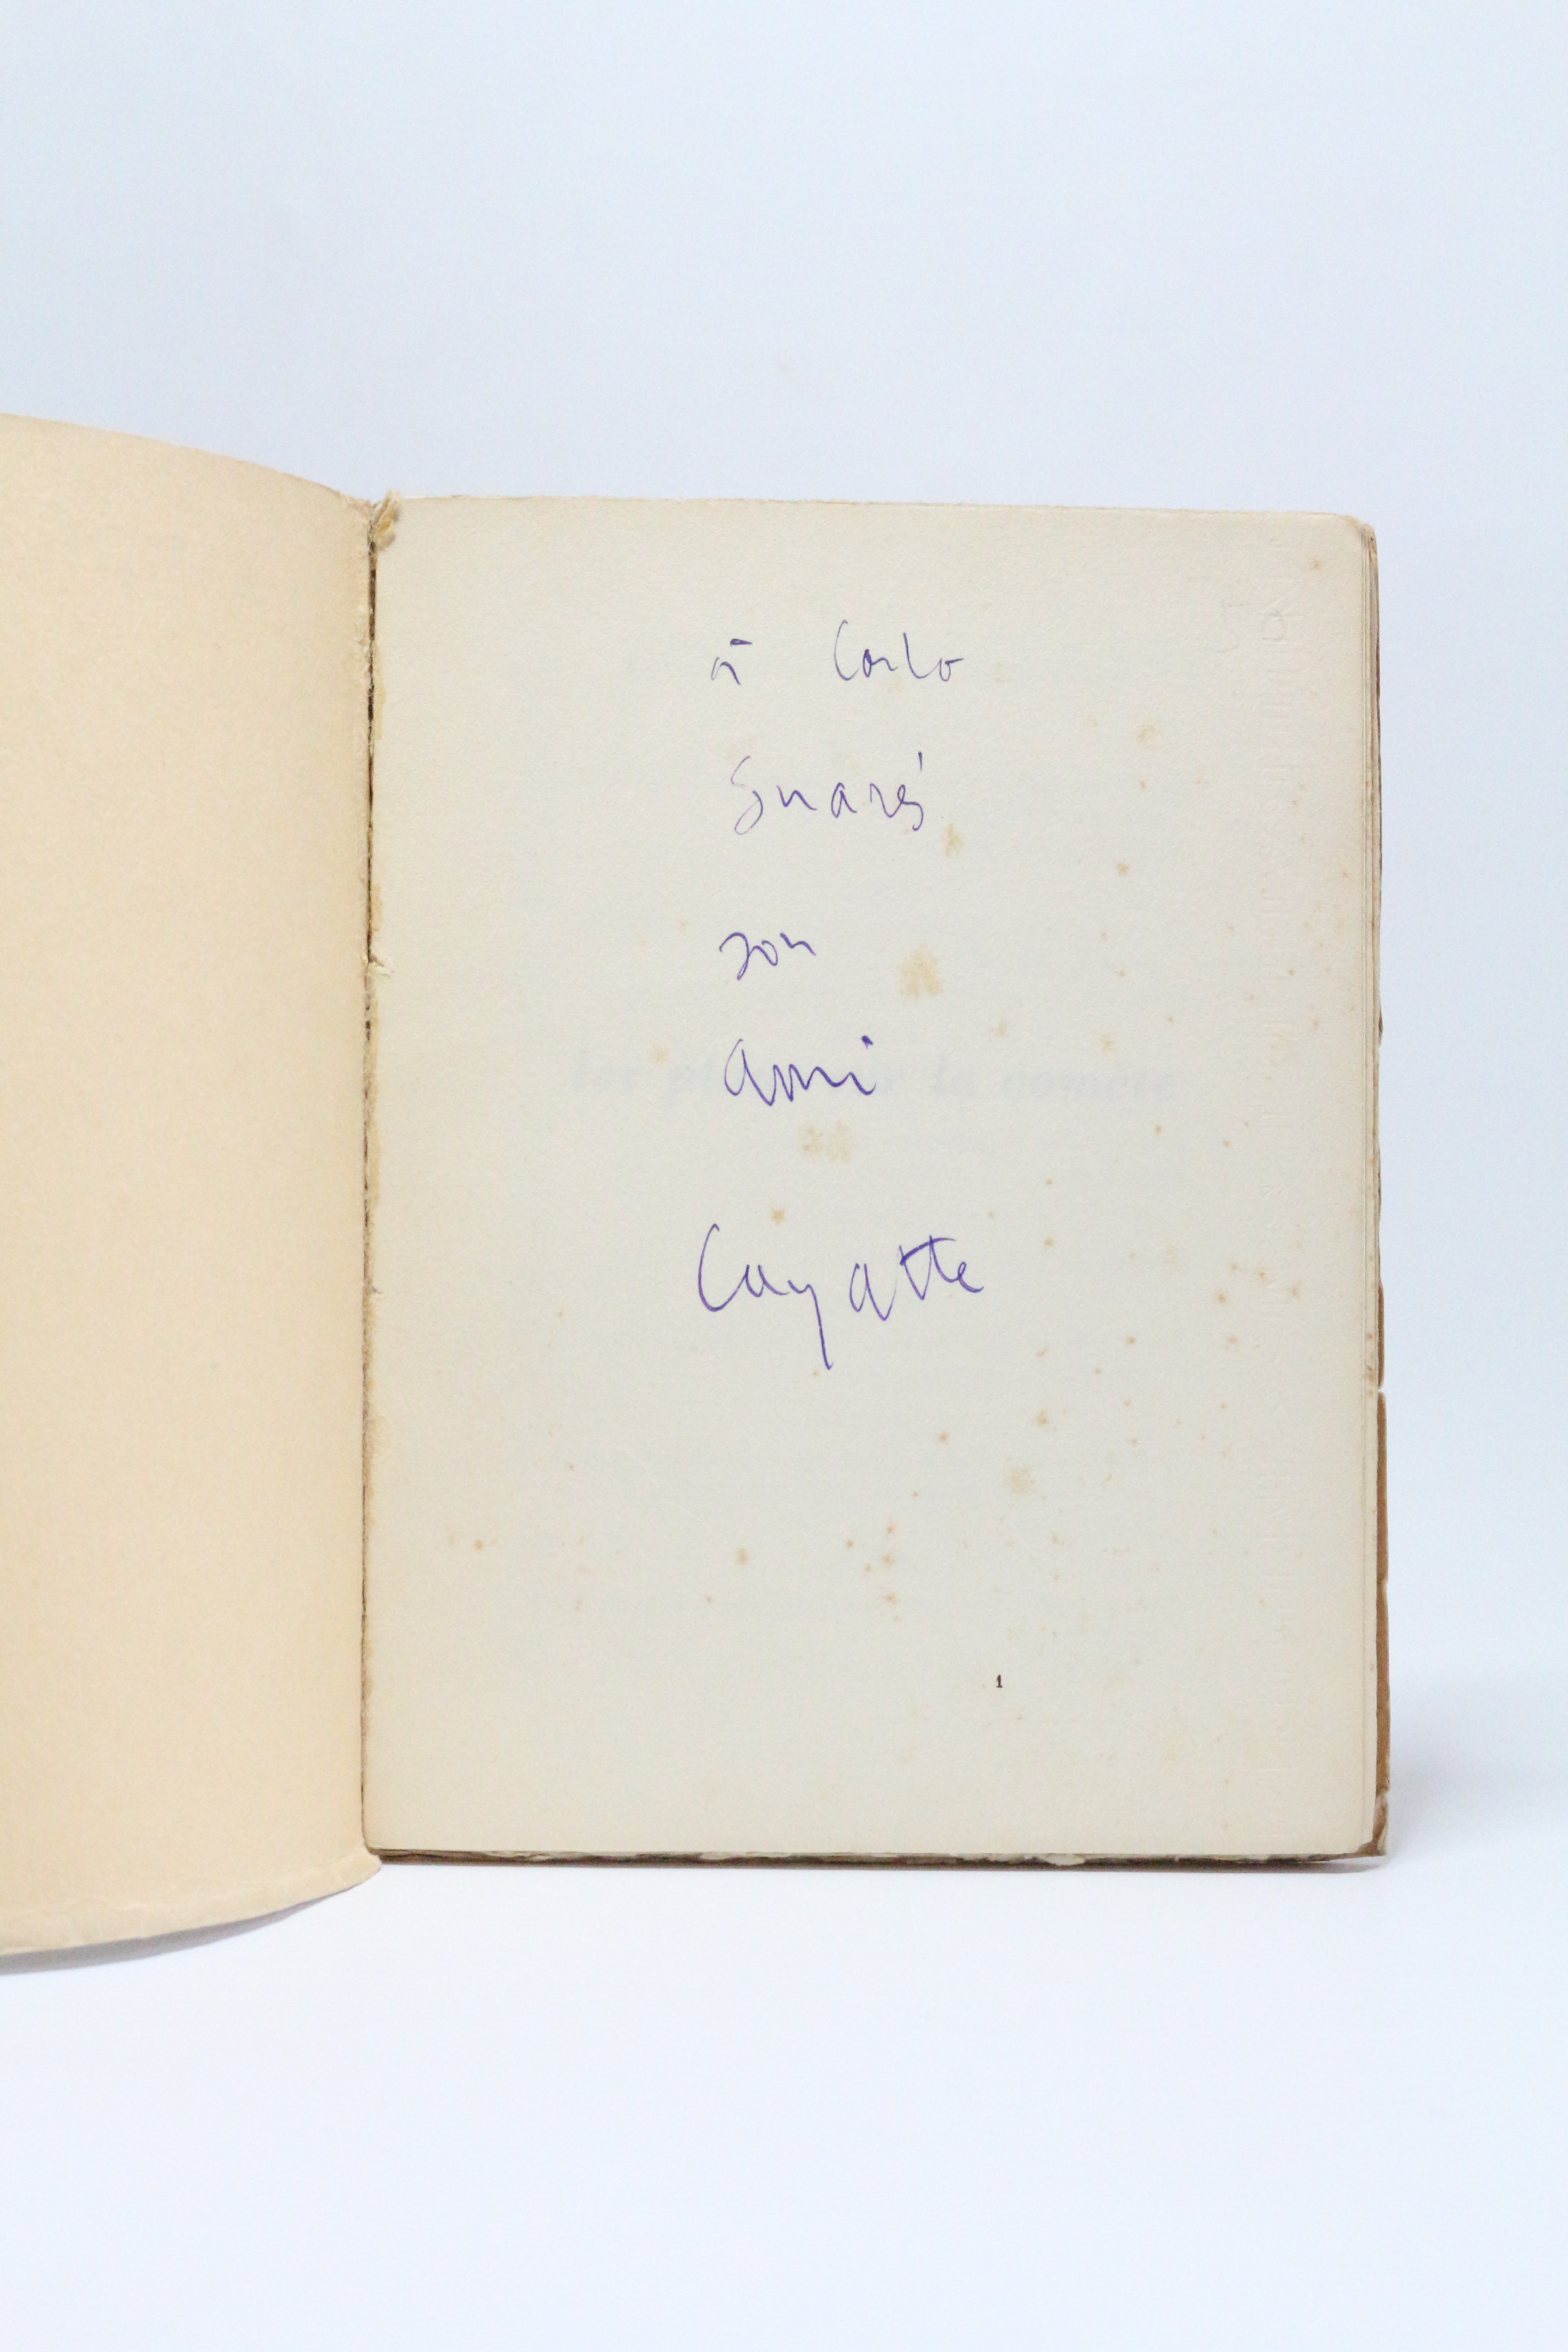 à Carlo
Suarès
son
ami
Cayatte
1